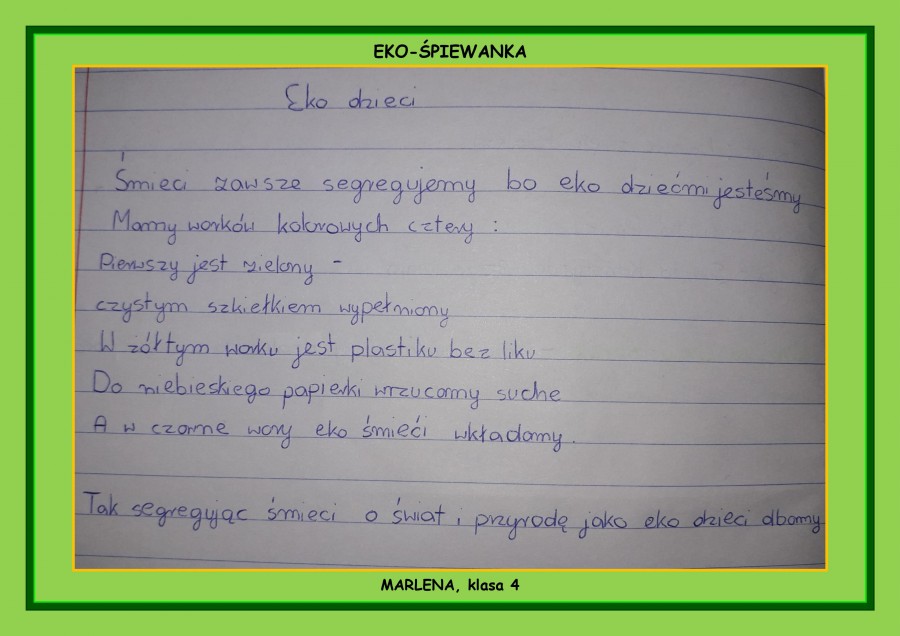 EKO-ŚPIEWANKA
Eko dzieci
Śmieci zawsze segregujemy bo eko dziećmi jesteśmy
Mamy worków kolorowych cztery :
Pierwszy jest zielony -
czystym szkiełkiem wypełniony
W żółtym worku jest plastiku bez liku
Do niebieskiego papierki wrzucamy suche
A w czarne wory eko śmieći wkładamy.
Tak segregując śmieci o świat i przyrodę jako eko dzieci dbamy
MARLENA, klasa 4